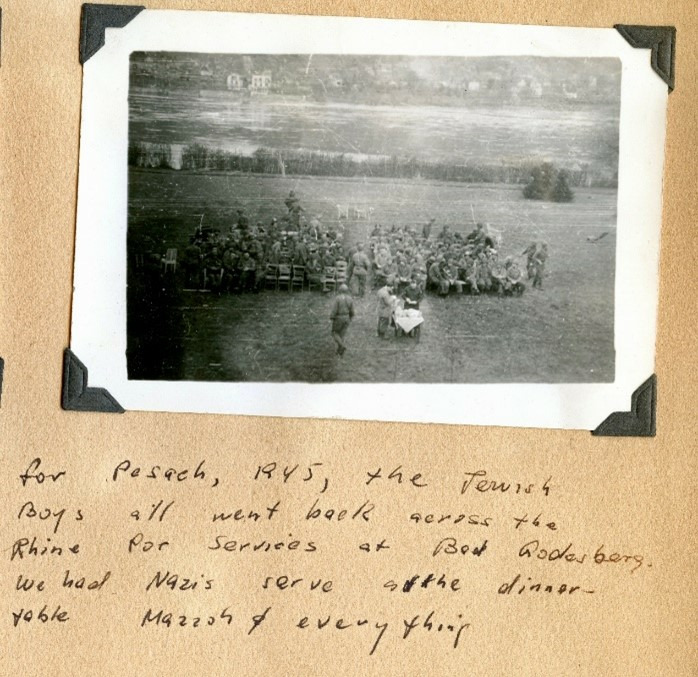 for Pesach, 1945, the Jewish
Boys all went back across the
Rhine for services at Bad Godesberg.
We had Nazis serve at the dinner-
table Mazzoh & everything